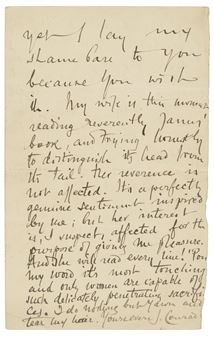 yet I lay my
shame bare to you
because you wish
it. My wife is this moment
reading reverently James'
book, and trying honestly
to distinguish its head from
its tail. Her reverence is
not affected. It's a perfectly
genuine sentiment inspired
by me; but her interest
is, I suspect, affected for the
purpose of giving me pleasure.
And she will read every line! 'Pon
my word it's most touching
and only women are capable of
such delicately penetrating sacrifi-
ces. I do nothing but yawn and
tear my hair. Yours ever J Conrad